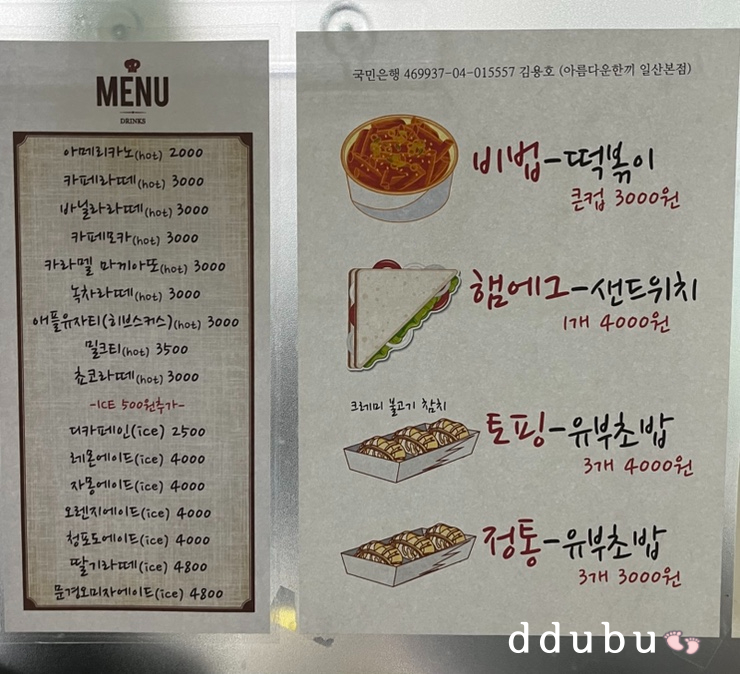 MENU
DRINKS
아메리카노(hot) 2000
카페라떼(hot) 3000
바닐라라떼(hot) 3000
카페모카(hot) 3000
카라멜 마끼아또(hot) 3000
녹차라떼(hot) 3000
애플유자티(히브스커스)(hot) 3000
밀크티(hot) 3500
쵸코라떼(hot) 3000
-ICE 500원추가-
디카페인(ice) 2500
레몬에이드(ice) 4000
자몽에이드(ice) 4000
오렌지에이드(ice) 4000
청포도에이드(ice) 4000
딸기라떼(ice) 4800
문경오미자에이드(ice) 4800
국민은행 469937-04-015557 김용호 (아름다운한끼 일산본점)
비법-떡볶이
큰컵 3000원
햄에그-샌드위치
1개 4000원
크레미 불고기 참치
토핑-유부초밥
3개 4000원
정통-유부초밥
3개 3000원
ddubu